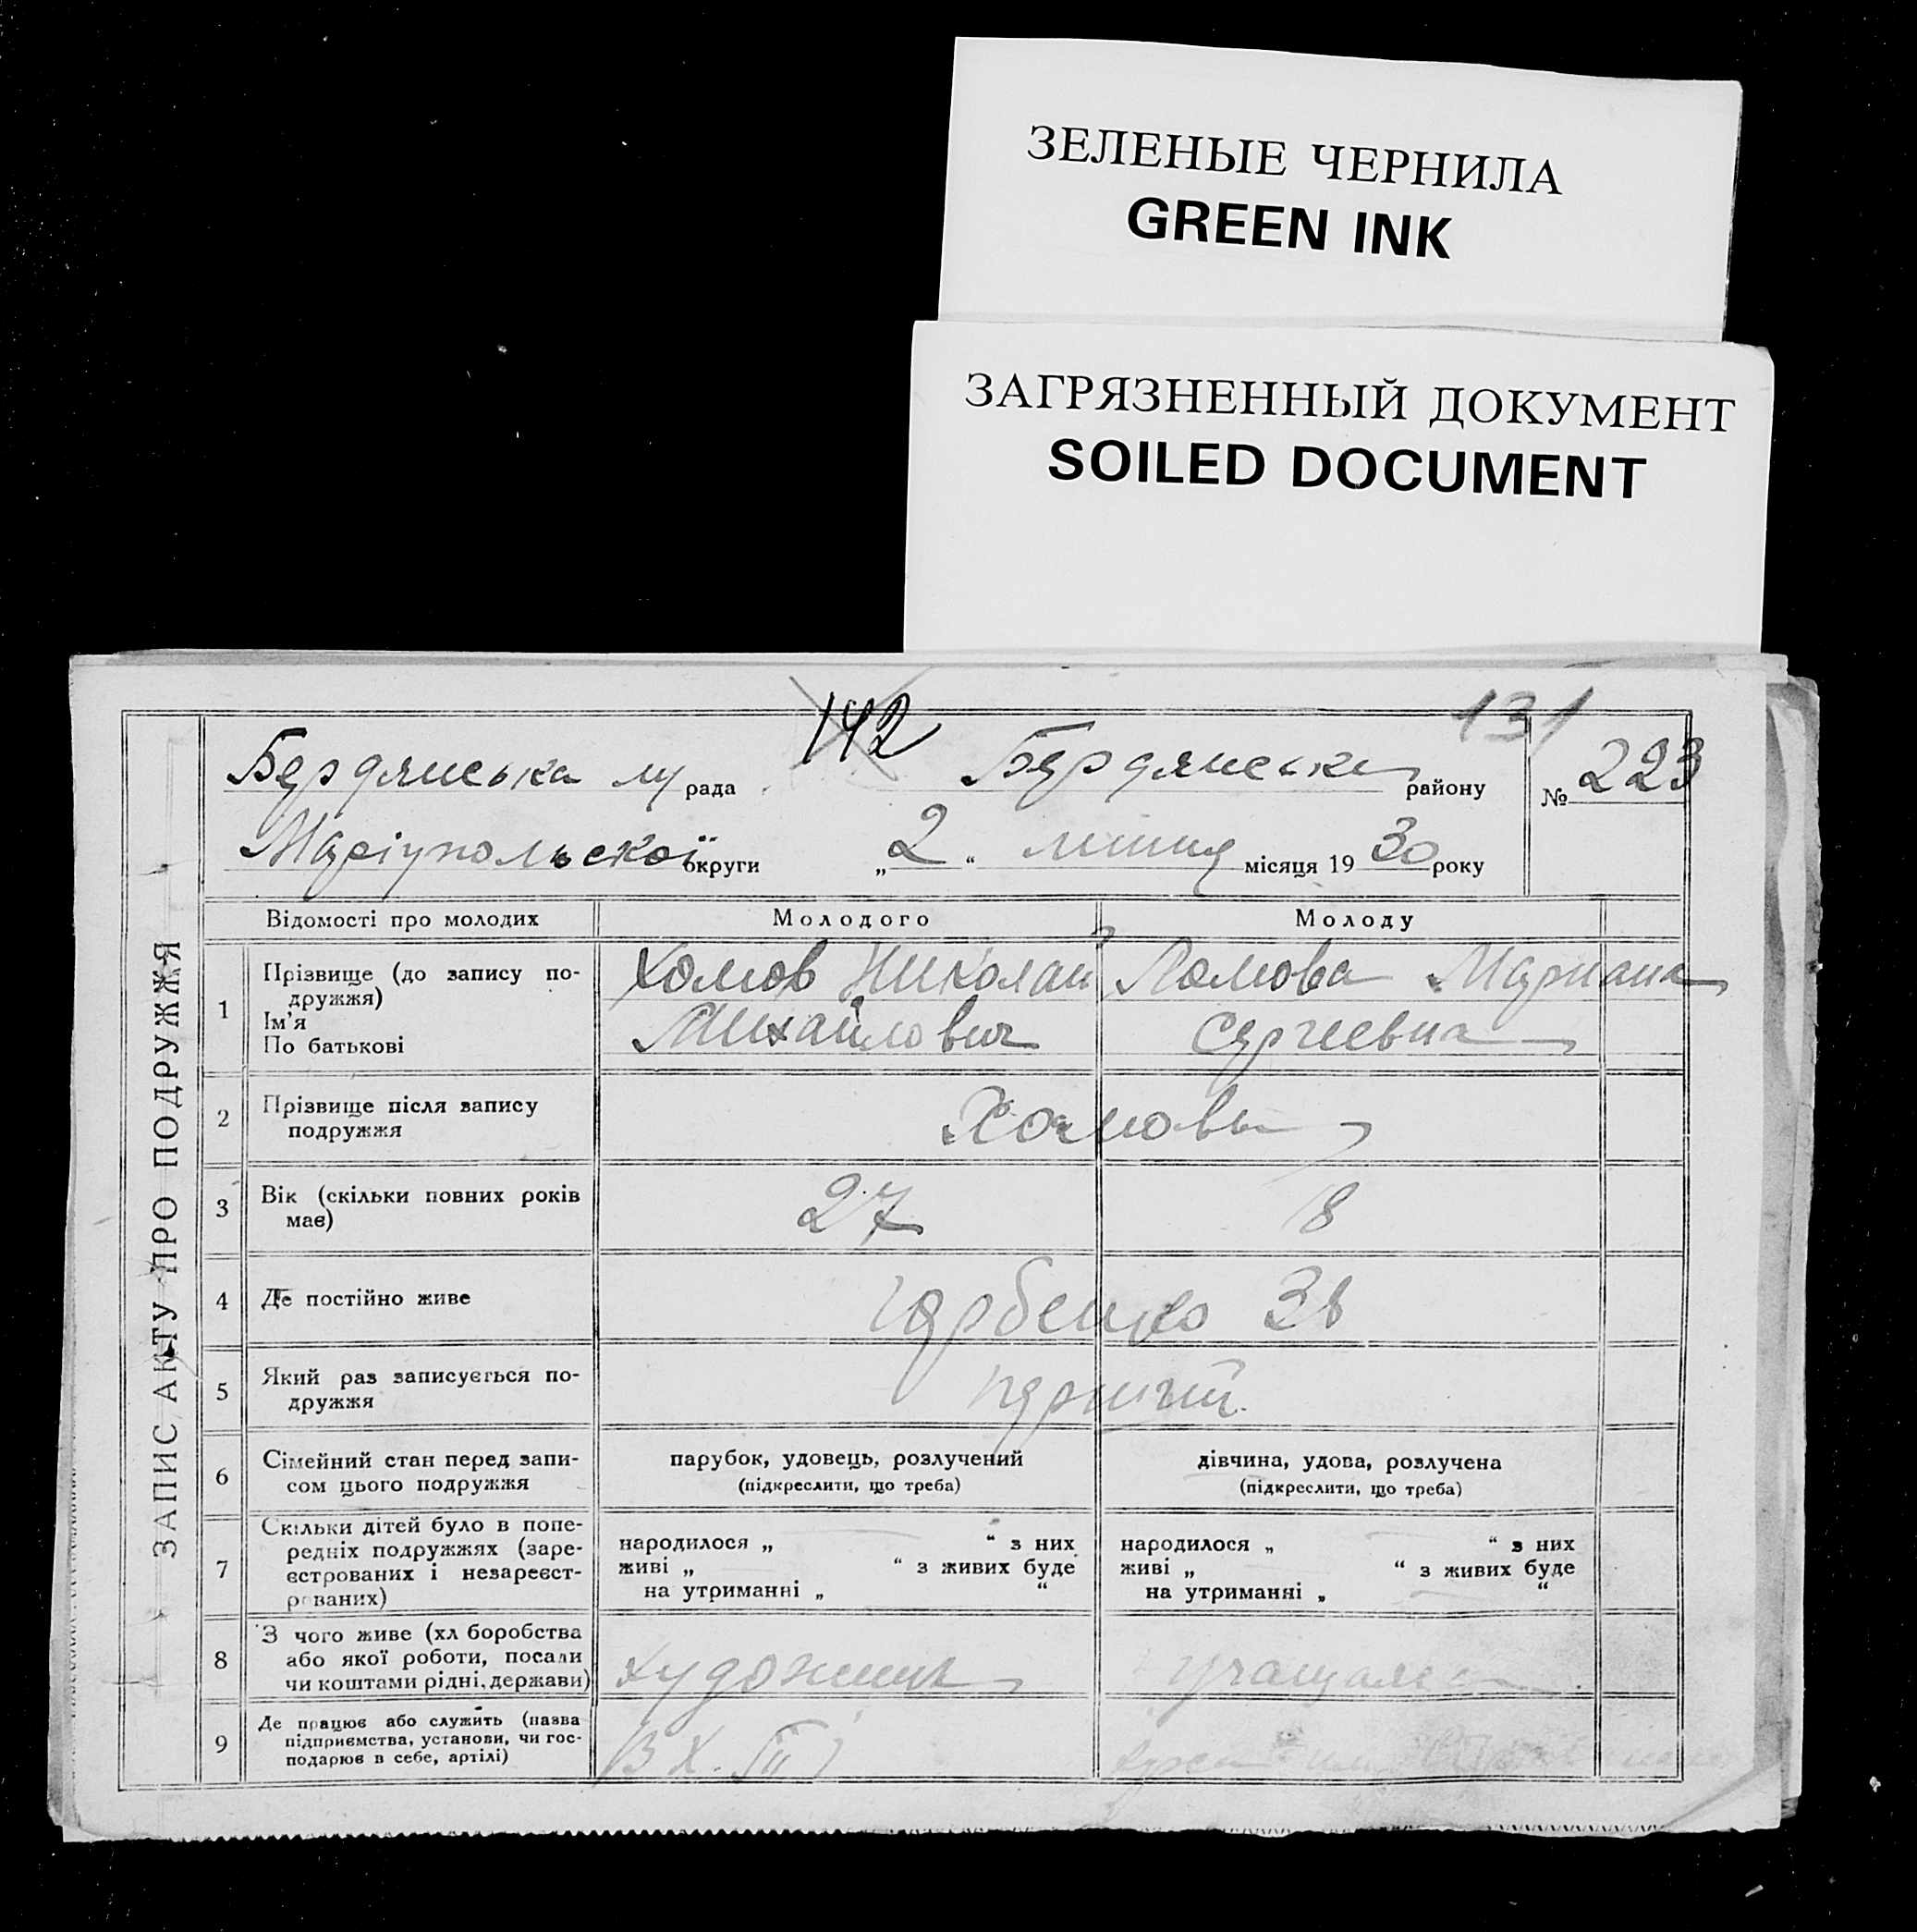 ЗЕЛЕНЫЕ ЧЕРНИЛА
GREEN INK
ЗАГРЯЗНЕННЫЙ ДОКУМЕНТ
SOILED DOCUMENT
142
131
Бердянська рада Бердянськ района району № 223
Маріупольської округи „2“ липня місяця 1930 року
ЗАПИС АКТУ ПРО ПОДРУЖЖЯ
Відомості про молодих Молодого Молоду
1 Прізвище (до запису по-
дружжя)
Ім'я
По батькові
Хомов Николай
Михайлович
Ломова Мариана
Сергеевна
2 Прізвище після запису
подружжя
Хомовы
3 Вік (скільки повних років
має)
27
18
4 Де постійно живе
38
5 Який раз записується по-
дружжя
перший
6 Сімейний стан перед запи-
сом цього подружжя
парубок, удовець, розлучений
(підкреслити, що треба)
дівчина, удова, розлучена
(підкреслити, що треба)
7 Скільки дітей було в попе-
редніх подружжях (заре-
єстрованих і незареєст-
рованих)
народилося „ “ з них
живі „ “ з живих буде
на утриманні „ “
народилося „ “ з них
живі „ “ з живих буде
на утриманні „ “
8 З чого живе (хл боробства
або якої роботи, посади
чи коштами рідні, держави)
художник
учащаяся
9 Де працює або служить (назва
підприємства, установи, чи гос-
подарює в себе, артілі)